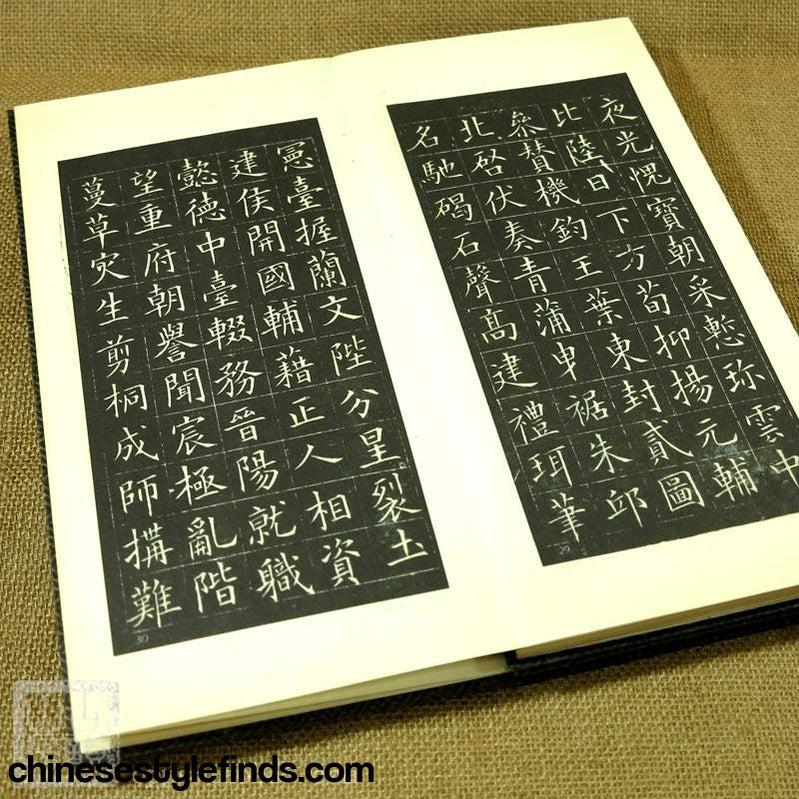 夜光愧寶朝采慙珍雲中
比陸日下方荀抑揚元輔
叅賛機鈞王葉東封貳圖
北啓伏奏青蒲曳裾朱邸
名馳碣石聲高建禮珥筆
29
憲臺握蘭文陛分星裂土
建侯開國輔藉正人相資
懿徳中臺輟務晉陽就職
望重府朝譽聞宸極亂階
蔓草灾生剪桐成師搆難
30
chinesestylefinds.com